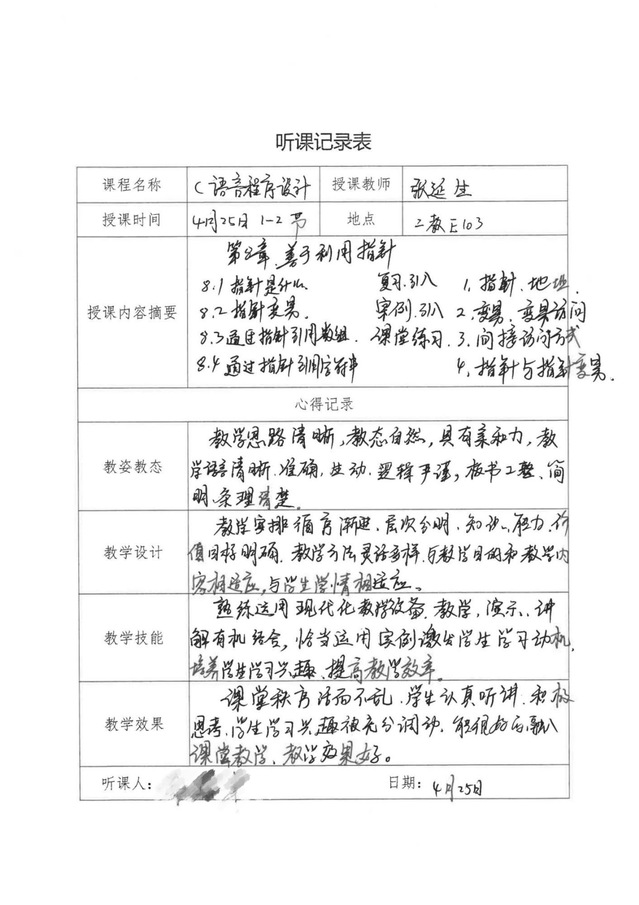 听课记录表
课程名称 C语言程序设计 授课教师 张延生
授课时间 4月25日 1-2节 地点 二教E103
第8章 善于利用指针
8.1 指针是什么 复习.引入 1. 指针.地址.
授课内容摘要 8.2 指针变量. 案例.引入 2. 变量.变量访问
8.3 通过指针引用数组. 课堂练习. 3. 间接访问方式
8.4 通过指针引用字符串 4. 指针与指针变量.
心得记录
教学思路清晰,教态自然,具有亲和力,教
教姿教态 学语言清晰.准确.生动.逻辑严谨,板书工整、简
明、条理清楚。
教学安排循序渐进.层次分明.知识.能力.价
教学设计 值目标明确.教学方法灵活多样.与教学目的和教学内
容相适应,与学生学情相适应。
熟练运用现代化教学设备.教学,演示.讲
教学技能 解有机结合,恰当运用案例激发学生学习动机,
培养学生学习兴趣、提高教学效率。
课堂秩序活而不乱.学生认真听讲.积极
教学效果 思考.学生学习兴趣被充分调动.能很好的融入
课堂教学,教学效果好。
听课人: 日期: 4月25日